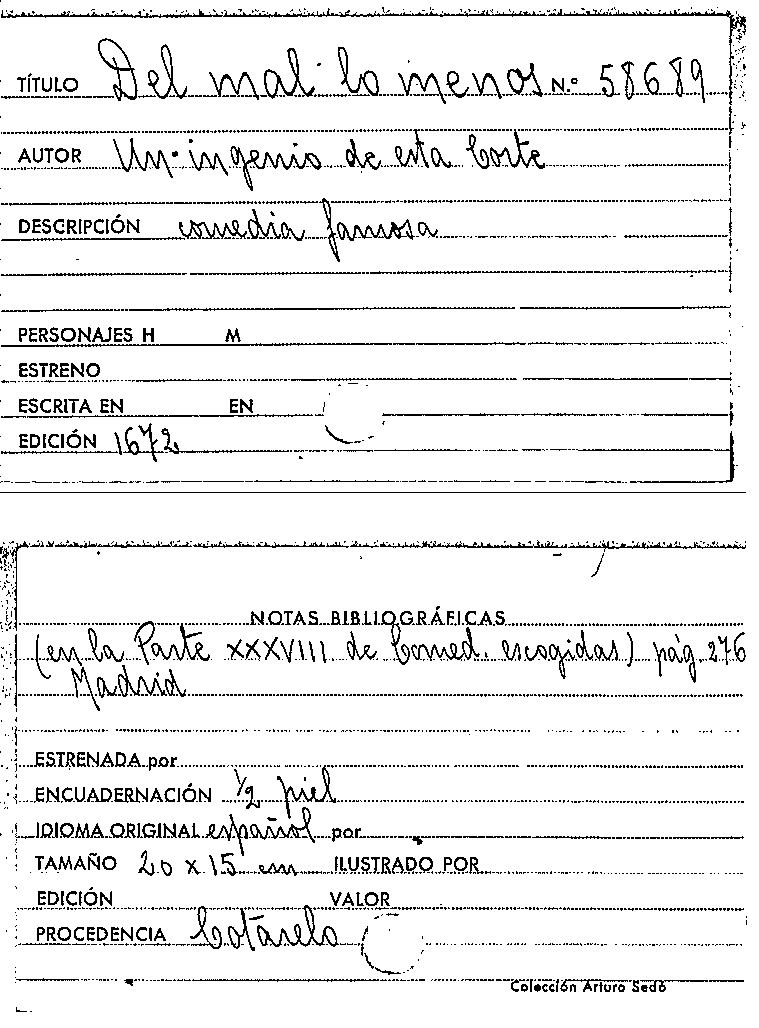 TÍTULO Del mal lo menos N.º 58689
AUTOR Un ingenio de esta Corte
DESCRIPCIÓN comedia famosa
PERSONAJES H M
ESTRENO
ESCRITA EN EN
EDICIÓN 1672
NOTAS BIBLIOGRÁFICAS
(en la Parte XXXVIII de Comed. escogidas) pág. 276
Madrid
ESTRENADA por
ENCUADERNACIÓN 1/2 piel
IDIOMA ORIGINAL español por
TAMAÑO 20 x 15 cm ILUSTRADO POR
EDICIÓN VALOR
PROCEDENCIA Cotarelo
Colección Arturo Sedó